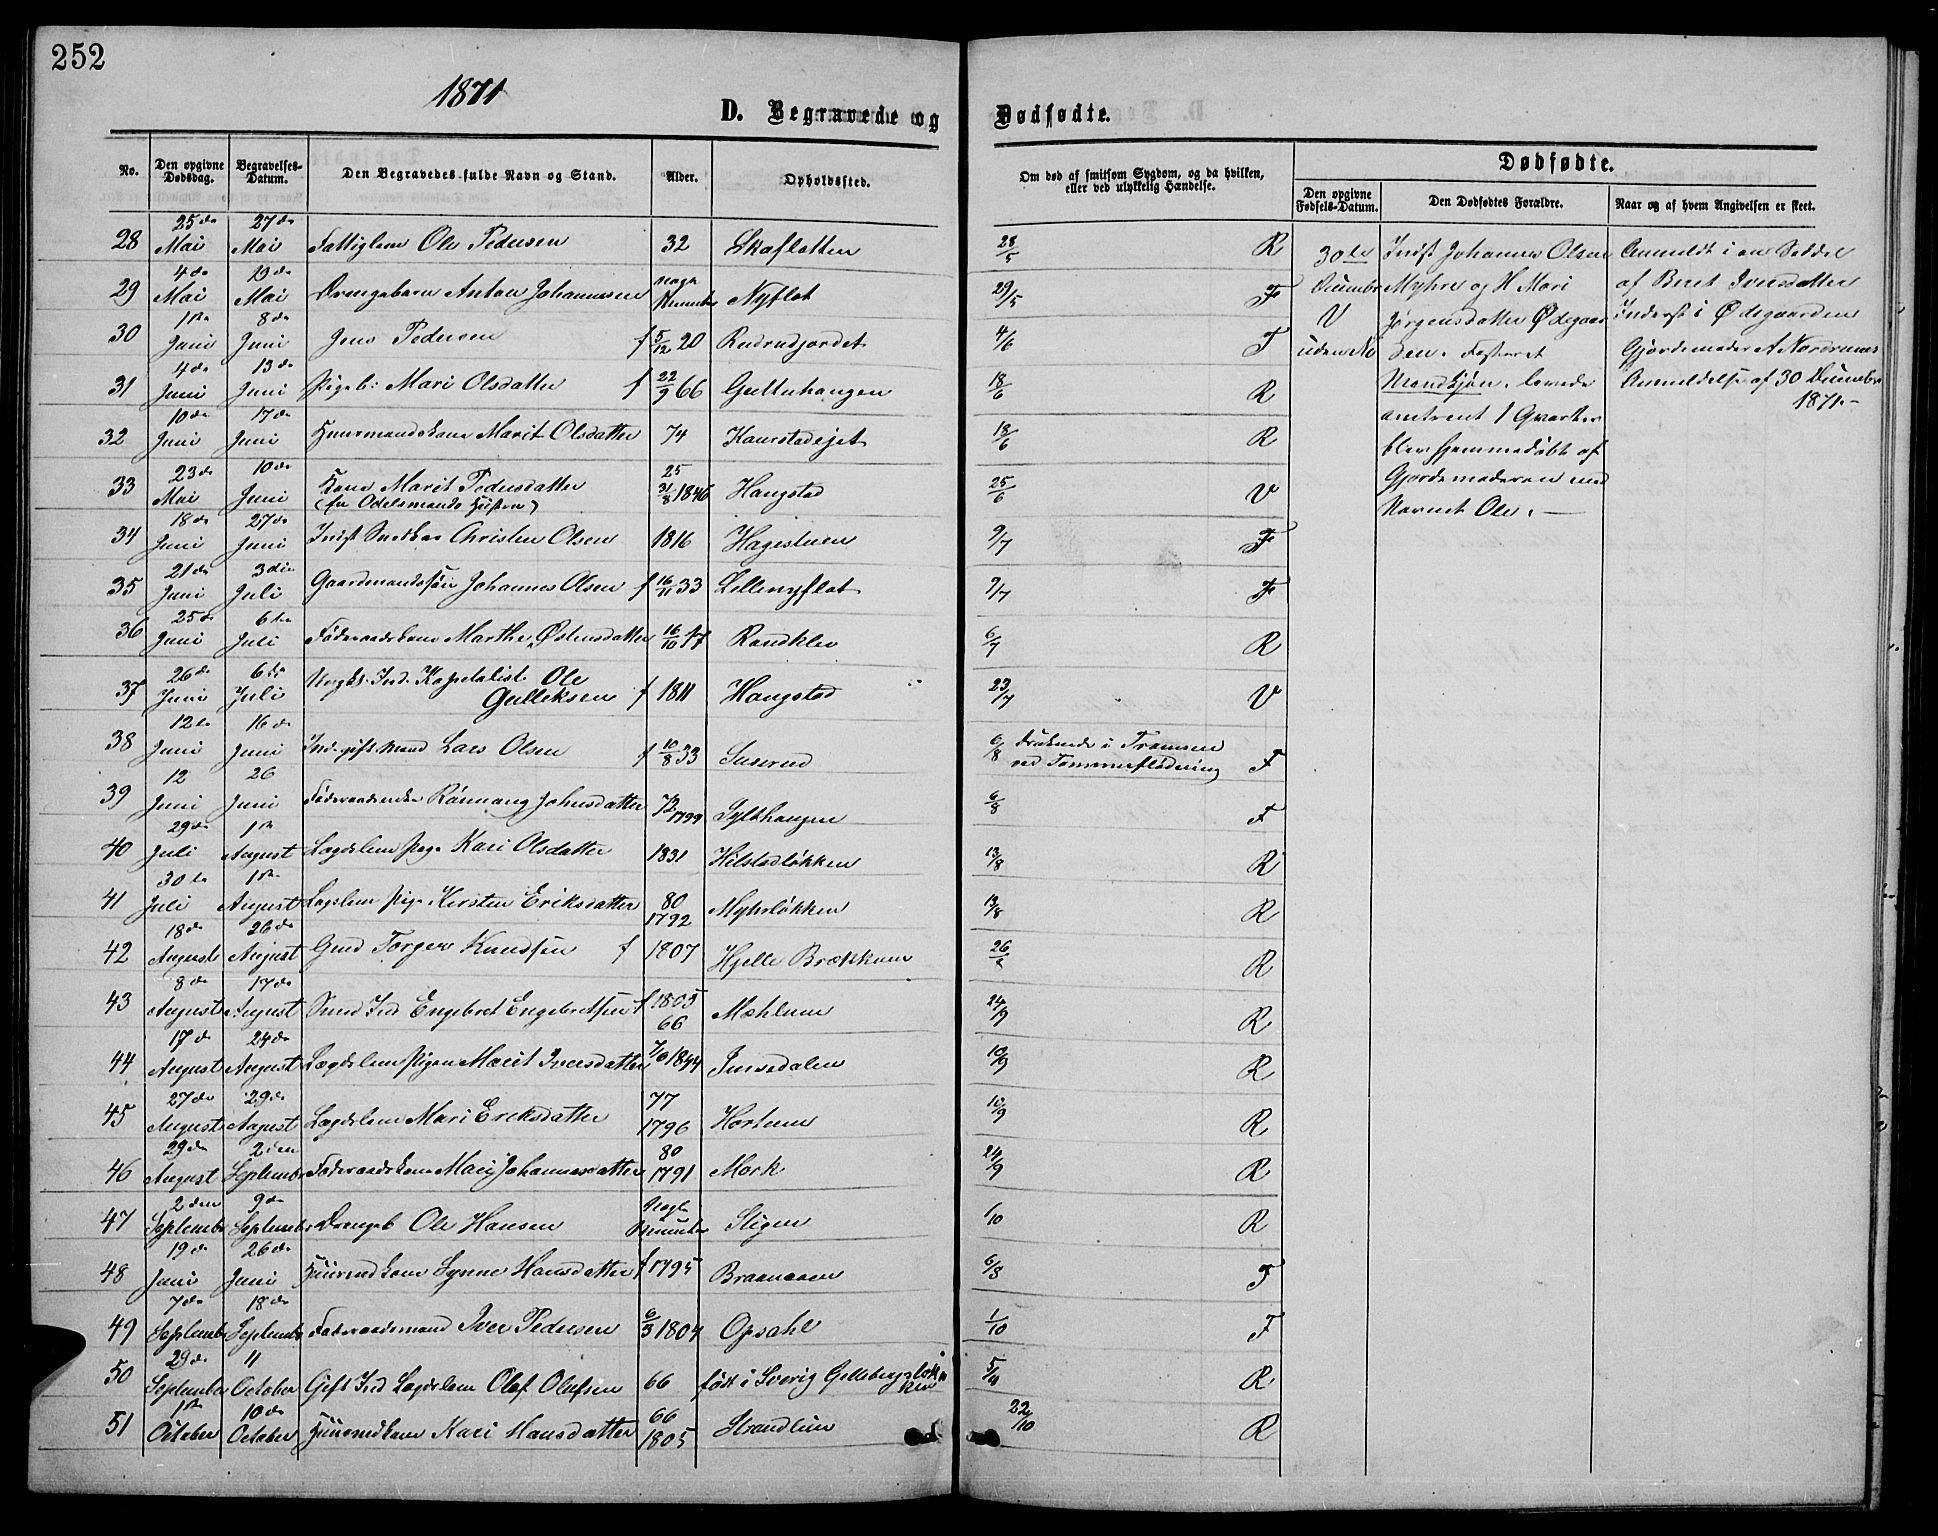 252
1871
D. Begravede og Dødfødte.
No. Den opgivne Dødsdag. Begravelses-Datum. Den Begravedes fulde Navn og Stand. Alder. Opholdssted. Om død af smitsom Sygdom, og da hvilken, eller ved ulykkelig Hændelse. Dødfødte.
Den opgivne Fødsels-Datum. Den Dødfødtes Forældre. Naar og af hvem Angivelsen er skeet.
28 25de Mai 27de Mai Fattiglem Ole Pedersen 32 Skaflotten 28/5 R
29 4de Mai 19de Mai Drengebarn Anton Johannessen Nyflot 29/5 F
30 1ste Juni 8de Juni Jens Pedersen f 5/12 20 4/6 F
31 4de Juni 13de Juni Pigeb: Mari Olsdatter f 22/9 66 18/6 R
32 10de Juni 17de Juni Huusmandskone Marit Olsdatter 74 Kaurstadejet 18/6 R
33 23de Mai 10de Juni Kone Marit Pedersdatter 25 31/8 1846 Haugstad 25/6 V
34 18de Juni 27de Juni Inds Snedker Christen Olsen 1816 Hagestuen 9/7 F
35 21de Juni 3die Juli Gaardmandssøn Johannes Olsen f 16/11 33 Lillenyflot 9/7 F
36 25de Juni 6te Juli Føderaadskone Marthe Østensdatter 16/10 Randklev 6/7 R
37 26de Juni 6te Juli Ind. Kapitalist Ole Gulleksen f 1811 Haugstad 23/7 V
38 12te Juni 16de Juni Ind. gift Mand Lars Olsen f 10/8 33 Suserud 6/8 druknede i Framsen ved Tømmerflødning F
39 12 Juni 26 Juni Føderaadsenke Rønnaug Johnsdatter 72 1799 Sylthaugen 6/8 F
40 29de Juli 1ste August Lægdslem Pige Kari Olsdatter 1831 Hilstadløkken 13/8 R
41 30te Juli 1ste August Lægslem Pige Kirsten Eriksdatter 80 1792 Myhrløkken 13/8 R
42 18de August 26de August Gmd Torger Knudsen f 1807 Hjelle Brækkum 26/ R
43 8de August 17de August Smed Ind Engebret Engebretsen f 1805 66 Mæhlum 24/9 R
44 17de August 24de August Lægdslem Pigen Marit Iversdatter 1844 10/9 R
45 27de August 29de August Lægdslem Mari Eriksdatter 77 1796 Hortuen 10/9 R
46 29de August 2den September Føderaadskone Mari Johannesdatter 80 1791 Mork 24/9 R
47 2den September 9de September Drengeb Ole Hansen Nogle Stigen 1/10 R
48 19de Juni 26de Juni Huusmdskone Synne Hansdatter f 1795 6/8 F
49 7de September 18de September Føderaadsmand Iver Pedersen 6/3 1804 Opsahl 1/10 F
50 29de September 11 October Gift Ind Lægdslem Olof Olufsen 66 født i Sverig R
51 1ste October 10de October Huusmdkone Kari Hansdatter 66 1805 Strandlien 22/10 R
30te December V uden No
Inds Johannes Olsen
Myhre og H Mari
Jørgensdatter Ødegaar
den. Fosteret
Mandkjøn. levede
omtrent 1 Qvarter
blev hjemmedøbt af
Gjordemoderen med
Navnet Ole. —
Anmeldt i en Seddel
af Beret Iversdatter
Inderst i Ødegaarden
Gjordemoder A Nordrums
Anmeldelse af 30 December
1871.-